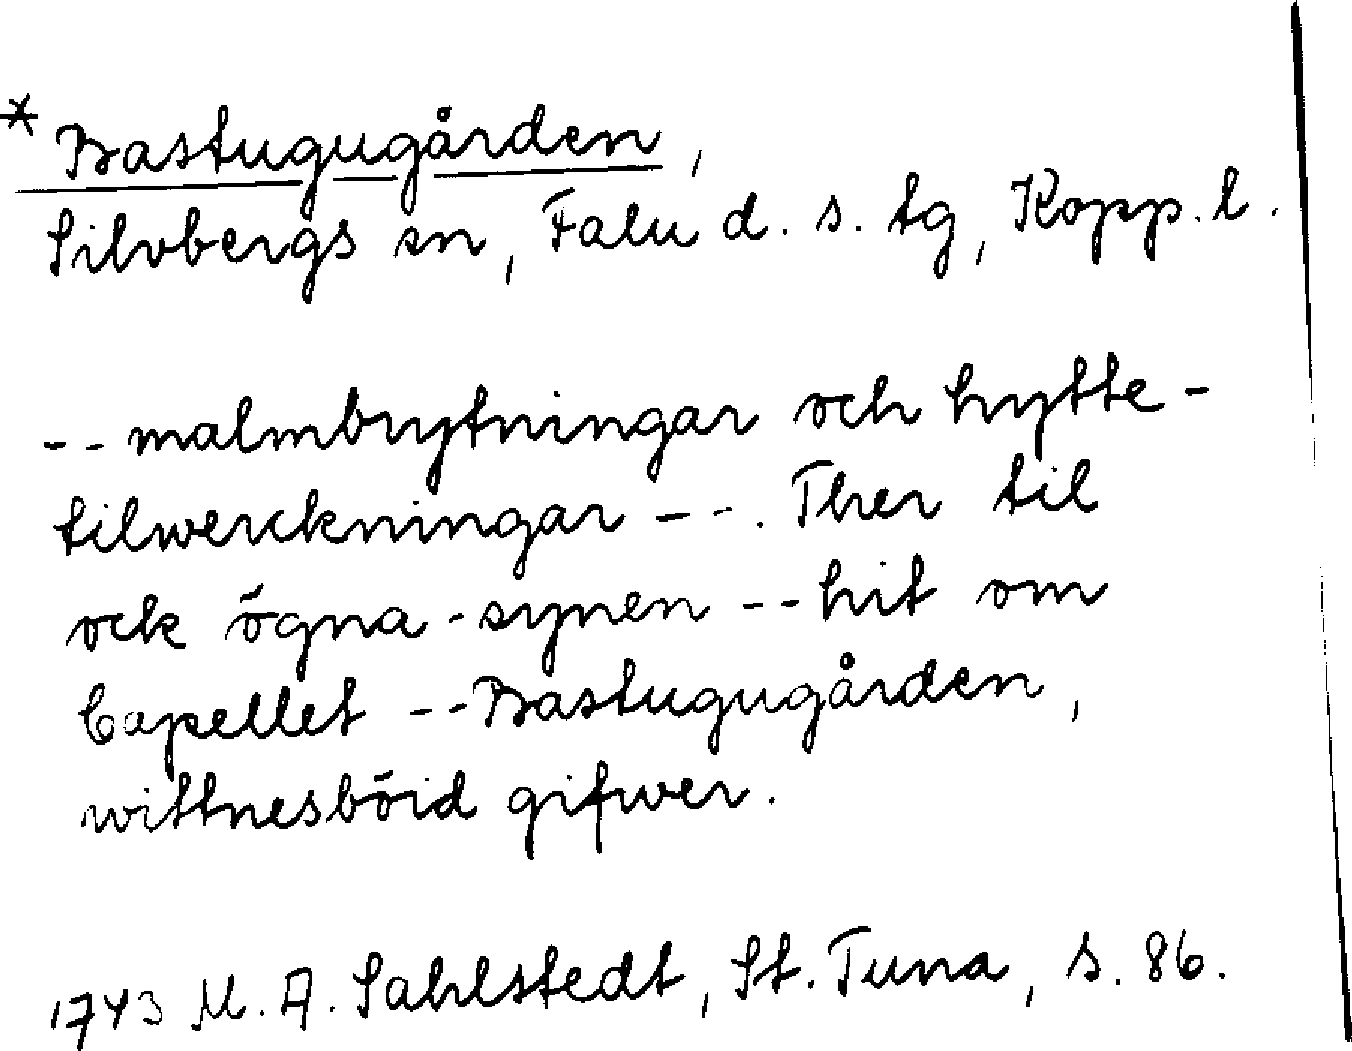 * Bastugugården,
Silvbergs sn, Falu d. s. tg, Kopp. l.
-- malmbrytningar och hytte-
tilwerckningar ---. Ther til
ock ögna-synen -- hit om
Capellet -- Bastugugården,
wittnesbörd gifwer.
1743 M. A. Sahlstedt, St. Tuna, s. 86.